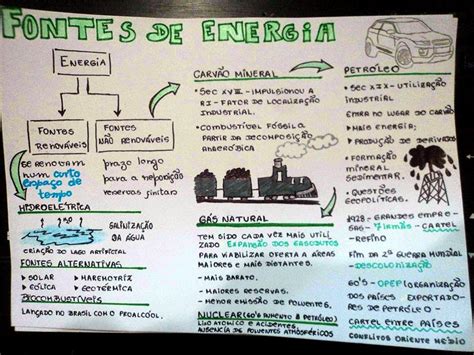 FONTES DE ENERGIA
ENERGIA
FONTES
RENOVÁVEIS
FONTES
NÃO RENOVÁVEIS
SE RENOVAM
NUM CURTO
ESPAÇO DE
TEMPO
PRAZO LONGO
PARA A REPOSIÇÃO
RESERVAS FINITAS
HIDROELÉTRICA
DA ÁGUA
CRIAÇÃO DO LAGO ARTIFICIAL
FONTES ALTERNATIVAS
▸ SOLAR
▸ MAREMOTRIZ
▸ EÓLICA
▸ GEOTÉRMICA
BIOCOMBUSTÍVEIS
LANÇADO NO BRASIL COM O PROALCOOL.
CARVÃO MINERAL
• SEC XVIII - IMPULSIONOU A
RI - FATOR DE LOCALIZAÇÃO
INDUSTRIAL.
• COMBUSTÍVEL FÓSSIL A
PARTIR DA DECOMPOSIÇÃO
ANAERÓBICA
GÁS NATURAL
TEM SIDO CADA VEZ MAIS UTILI
ZADO EXPANSÃO DOS GASODUTOS
PARA VIABILIZAR OFERTA A ÁREAS
MAIORES E MAIS DISTANTES.
- MAIS BARATO.
- MAIORES RESERVAS.
- MENOR EMISSÃO DE POLUENTES.
NUCLEAR (60'S AUMENTO B PETRÓLEO)
LIXO ATÔMICO E ACIDENTES.
AUSÊNCIA DE POLUENTES ATMOSFÉRICOS
PETRÓLEO
• SEC XIX - UTILIZAÇÃO
INDUSTRIAL.
ENTRA NO LUGAR DO CARVÃO
▸ MAIS ENERGIA;
▸ PRODUÇÃO DE DERIVADOS
• FORMAÇÃO
MINERAL
SEDIMENTAR.
- QUESTÕES
GEOPOLÍTICAS.
1928 - GRANDES EMPRE
SAS - 7 IRMÃS - CARTEL
- REFINO
FIM DA 2ª GUERRA MUNDIAL
- DESCOLONIZAÇÃO
60'S - OPEP (ORGANIZAÇÃO
DOS PAÍSES EXPORTADO-
RES DE PETRÓLEO -
CARTEL ENTRE PAÍSES
CONFLITOS ORIENTE MÉDIO